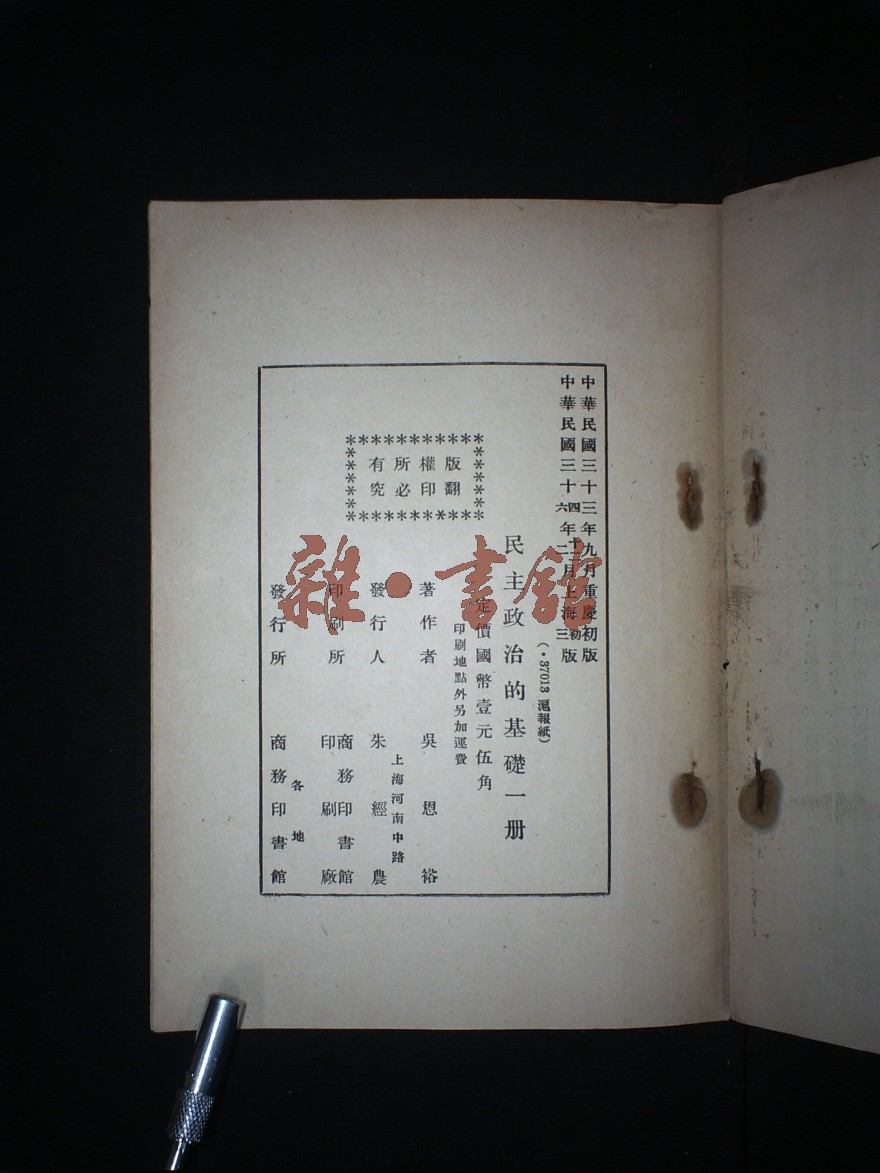 中華民國三十三年九月重慶初版
中華民國三十四年十二月上海初版
六年二月 三版
(·37013 滬報紙)
民主政治的基礎一册
定價國幣壹元伍角
印刷地點外另加運費
版權所有
翻印必究
著作者 吳恩裕
上海河南中路
發行人 朱經農
印刷所 商務印書館
印刷廠
各地
發行所 商務印書館
雜·書館